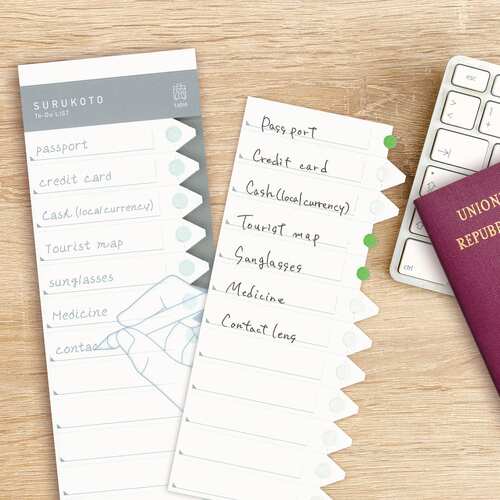 SURUKOTO
To-Do LIST
table
passport
credit card
Cash (local currency)
Tourist map
sunglasses
Medicine
contac
Passport
Credit card
Cash (local currency)
Tourist map
Sunglasses
Medicine
Contact lens
esc
ctrl
UNION
REPUB